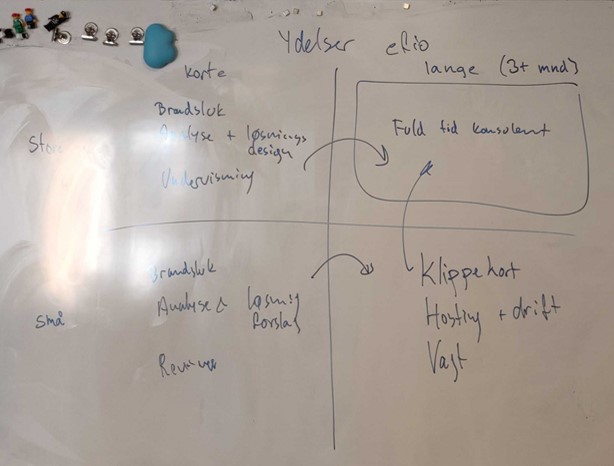 Ydelser
korte
lange (3+ mnd)
Brandsluk
Analyse + løsnings
design
Undervisning
Fuld tid konsulent
Brandsluk
små
Analyse & løsnig
forslag
Klippekort
Hosting + drift
Vagt